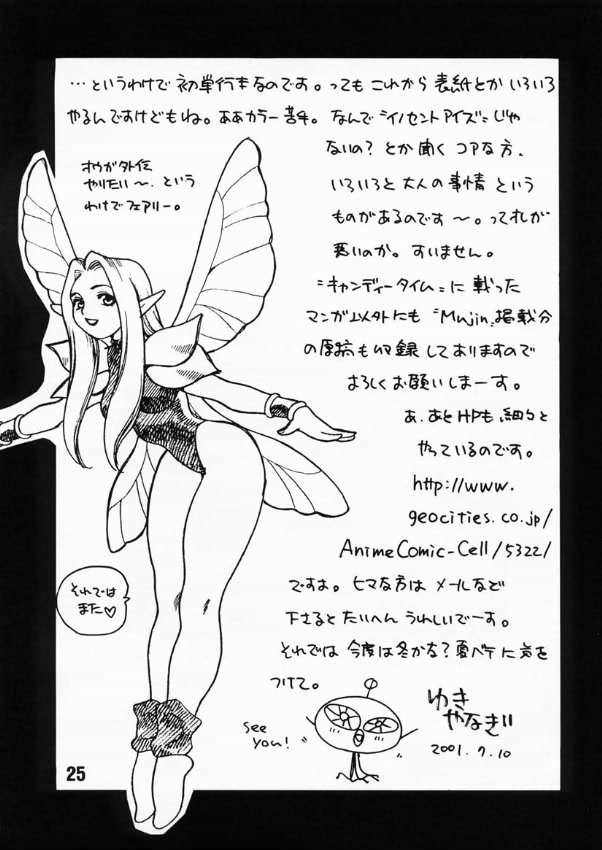 …というわけで初単行本なのです。っても これから 表紙とか いろいろ
やるんですけどもね。ああカラー苦手。なんで "イノセントアイズ" じゃ
ないの？とか聞く コアな方、
いろいろと大人の事情という
ものがあるのです～。ってそれが
悪いのか。すいません。
"キャンディータイム" に載った
マンガ以外にも "Mujin" 掲載分
の原稿も収録してありますので
よろしくお願いしまーす。
あ、あとHPも、細々と
やっているのです。
http://www.
geocities.co.jp/
AnimeComic-Cell/5322/
ですよ。ヒマな方は メールなど
下さると たいへん うれしいでーす。
それでは 今度は冬かな？夏バテに気を
つけて。
オウガ外伝
やりたい～、という
わけでフェアリー。
それでは
また♡
see
you!
ゆき
やなぎ
2001.7.10
25